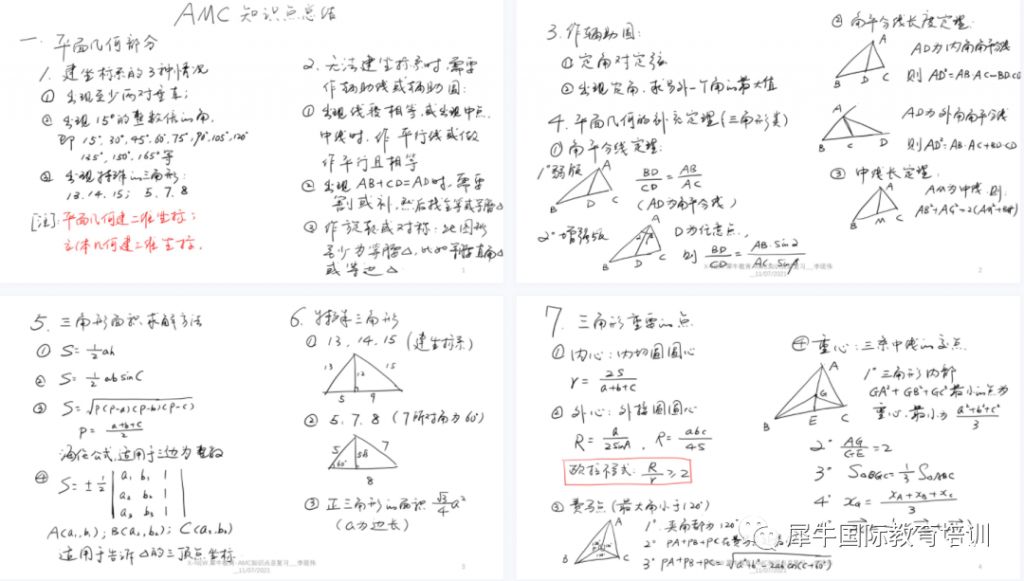 AMC 知识点总结
一. 平面几何部分
1. 建坐标系的3种情况
① 出现至少两对垂直;
② 出现15°的整数倍的角,
即 15°, 30°, 45°, 60°, 75°, 90°, 105°, 120°
135°, 150°, 165° 等
③ 出现特殊的三角形:
13. 14. 15; 5. 7. 8
[注]: 平面几何建二维坐标;
立体几何建三维坐标.
2. 无法建坐标系时, 需要
作辅助线或辅助圆:
① 出现线段相等, 或出现中点,
中线时, 作平行线或做
作平行且相等
② 出现 AB+CD=AD时, 需要
割或补, 然后找全等或等腰△
③ 作旋转或对称: 此图形
至少为等腰△, 比如等腰直角△
或等边△
1
3. 作辅助圆:
① 定角对定弦
② 出现定角, 求另外一个角的最大值
4. 平面几何的补充定理(三角形类)
① 角平分线定理:
1° 弱版
BD/CD = AB/AC
(AD为角平分线)
A
B D C
2° 增强版
D为任意点.,
则 BD/CD = AB·sin2/AC·sin1
A
B D C
② 角平分线长度定理:
AD为内角角平分线
则 AD²=AB·AC-BD·CD
A
B D C
AD为外角角平分线
则AD²=AB·AC+BD·CD
A
B C D
③ 中线长定理:
AM为中线, 则:
AB²+AC²=2(AM²+BM²)
A
B M C
11/07/2021
2
5. 三角形面积求解方法
① S=½ah
② S=½ab sinC
③ S=√P(P-a)(P-b)(P-c)
P=(a+b+c)/2
海伦公式, 适用于三边为整数
④ S=±½ | a₁ b₁ 1 |
| a₂ b₂ 1 |
| a₃ b₃ 1 |
A(a₁,b₁); B(a₂,b₂); C(a₃,b₃)
适用于告诉△的三顶点坐标
6. 特殊三角形
① 13, 14, 15 (建坐标系)
13 12 15
5 9
② 5, 7, 8 (7所对角为60°)
5 7
60°
8
③ 正三角形的面积 √3/4 a²
(a为边长)
X-NEW 犀牛教育-AMC知识点总复习__李晟伟
__11/07/2021
3
7. 三角形重要的点
① 内心: 内切圆圆心
r = 2S/(a+b+c)
② 外心: 外接圆圆心
R = a/2sinA , R = abc/4S
欧拉不等式: R/r ≥ 2
③ 费马点 (最大角小于120°)
1° 夹角都为120°
2° PA+PB+PC
3° PA+PB+PC=
A
B C
④ 重心: 三条中线的交点
1° 三角形内部
GA²+GB²+GC² 最小的点为
重心, 最小为 (a²+b²+c²)/3
2° AG/GE=2
3° S△BGC=⅓S△ABC
4° x_G = (x_A+x_B+x_C)/3
A
G
B E C
犀牛国际教育培训
X-NEW 犀牛教育-AMC知识点总复习__李晟伟
__11/07/2021
4